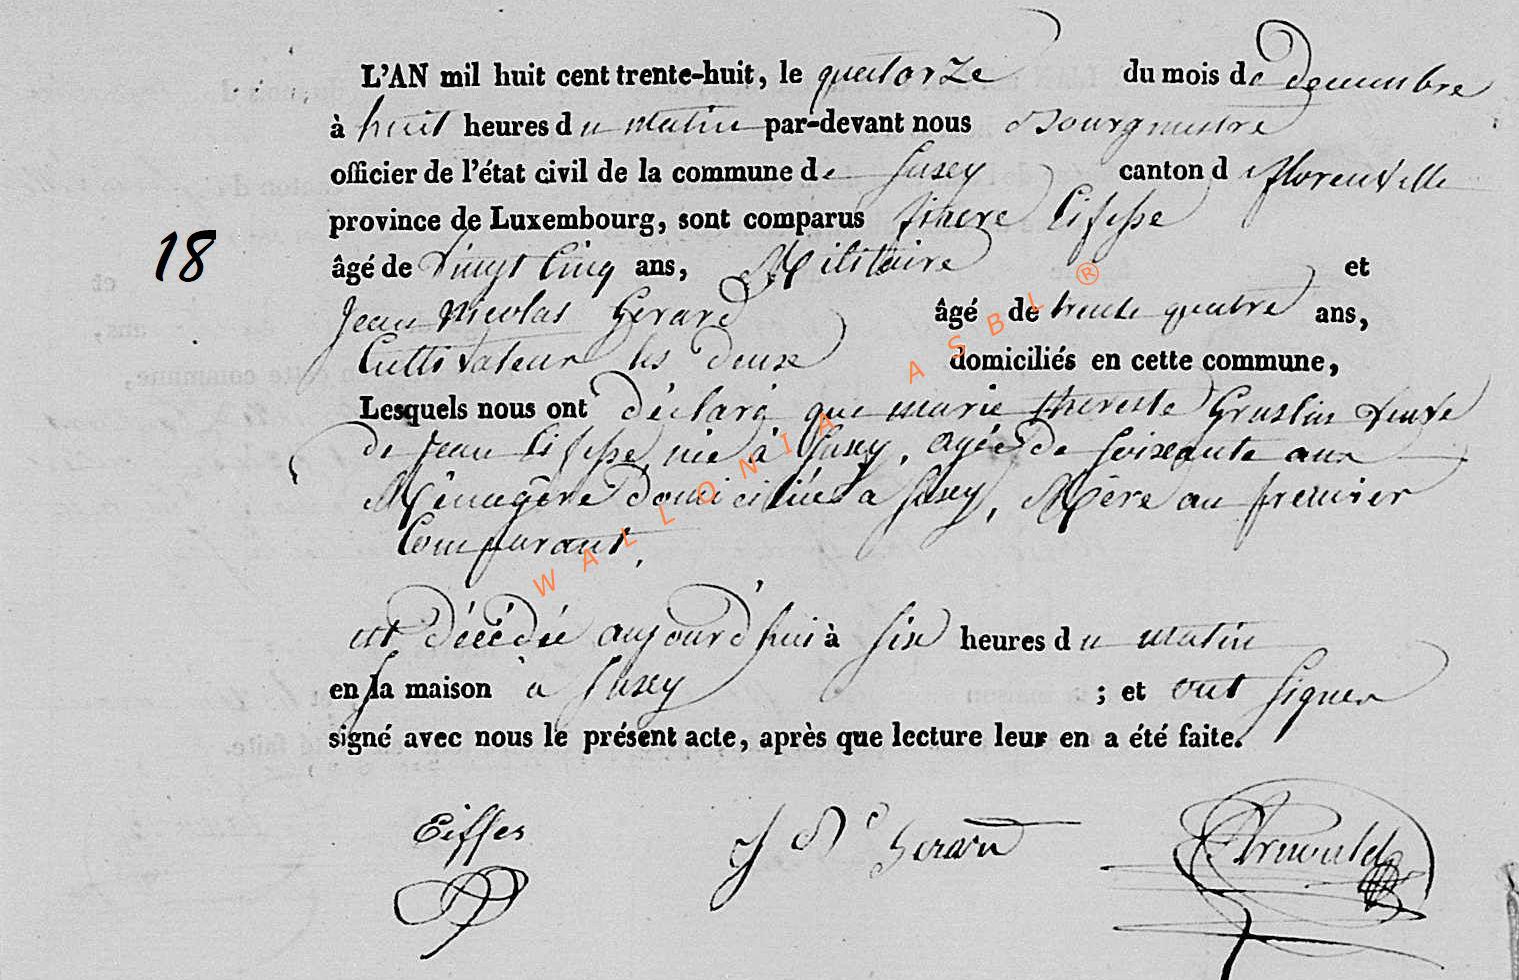 L'AN mil huit cent trente-huit, le quatorze du mois de decembre
à huit heures du matin par-devant nous Bourgmestre
officier de l'état civil de la commune de Suxey canton d florenville
province de Luxembourg, sont comparus pierre
18
âgé de vingt cinq ans, Militaire et
Jean Nicolas Gerard âgé de trente quatre ans,
Cultivateur les deux domiciliés en cette commune,
Lesquels nous ont déclaré que marie therese Graslin veuve
de Jean née à Suxy, agée de soixante ans
Ménagère domiciliée a Suxey, Mère au premier
Comparant,
est décédée aujourd'hui à six heures du matin
en sa maison à Suxey ; et ont signer
signé avec nous le présent acte, après que lecture leur en a été faite.
Eiffes J N Gerard
WALLONIA ASBL ®